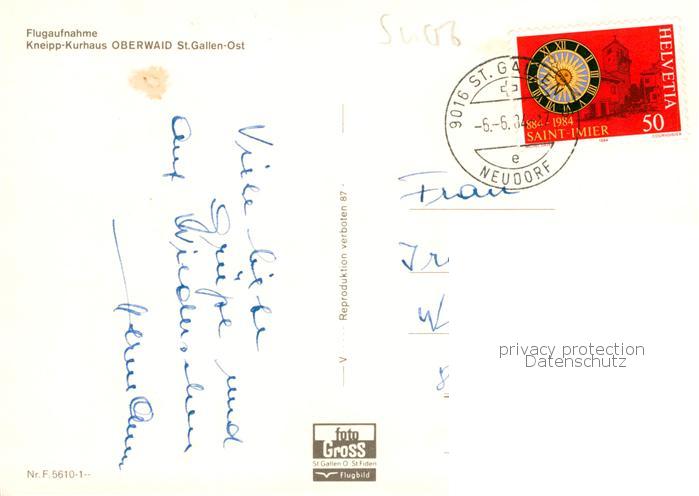 Flugaufnahme
Kneipp-Kurhaus OBERWAID St.Gallen-Ost
Viele liebe
Grüße und
auf Wiedersehen
Reproduktion verboten 87
V
9016 ST. GALLEN
-6.-6.84
e
NEUDORF
HELVETIA
884-1984
SAINT-IMIER
50
COURVOISIER
1984
Frau
privacy protection
Datenschutz
foto
Gross
St Gallen O St Fiden
Flugbild
Nr. F. 5610-1--